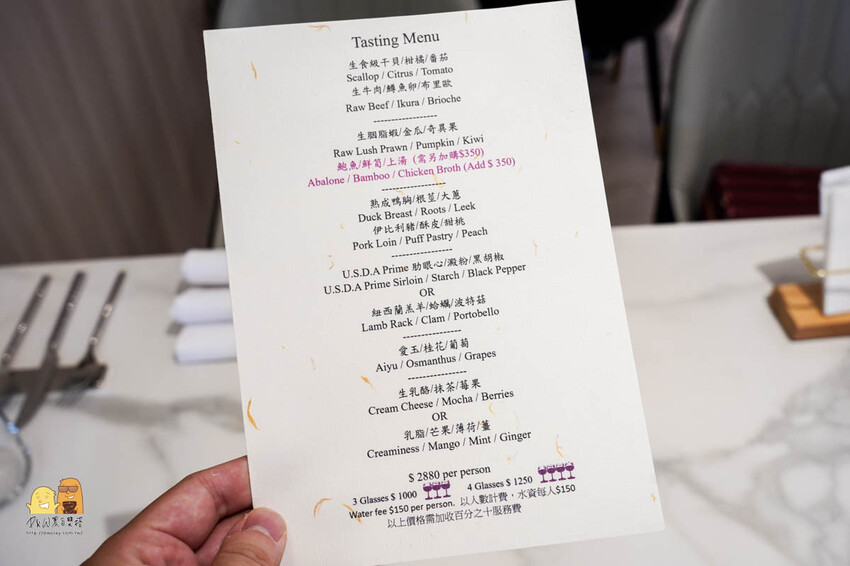 Tasting Menu
生食級干貝/柑橘/番茄
Scallop / Citrus / Tomato
生牛肉/鱒魚卵/布里歐
Raw Beef / Ikura / Brioche
------------------
生胭脂蝦/金瓜/奇異果
Raw Lush Prawn / Pumpkin / Kiwi
鮑魚/鮮筍/上湯 (需另加購$350)
Abalone / Bamboo / Chicken Broth (Add $ 350)
------------------
熟成鴨胸/根莖/大蔥
Duck Breast / Roots / Leek
伊比利豬/酥皮/甜桃
Pork Loin / Puff Pastry / Peach
-----------------
U.S.D.A Prime 肋眼心/澱粉/黑胡椒
U.S.D.A Prime Sirloin / Starch / Black Pepper
OR
紐西蘭羔羊/蛤蠣/波特菇
Lamb Rack / Clam / Portobello
----------------
愛玉/桂花/葡萄
Aiyu / Osmanthus / Grapes
----------------
生乳酪/抹茶/莓果
Cream Cheese / Mocha / Berries
OR
乳脂/芒果/薄荷/薑
Creaminess / Mango / Mint / Ginger
$ 2880 per person
3 Glasses $ 1000 4 Glasses $ 1250
Water fee $150 per person. 以人數計費，水資每人$150
以上價格需加收百分之十服務費